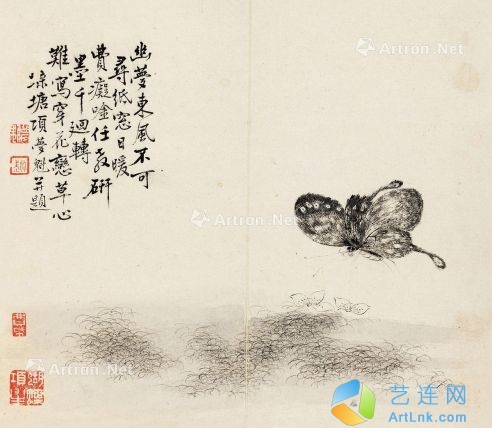 幽夢東風不可
尋低窓日暖
費癡唫任教研
墨千廻轉
難寫穿花戀草心
項夢魁並題
Artron.Net
Artron.Net
Artron.Net
Artron.Net
艺连网
ArtLnk.com